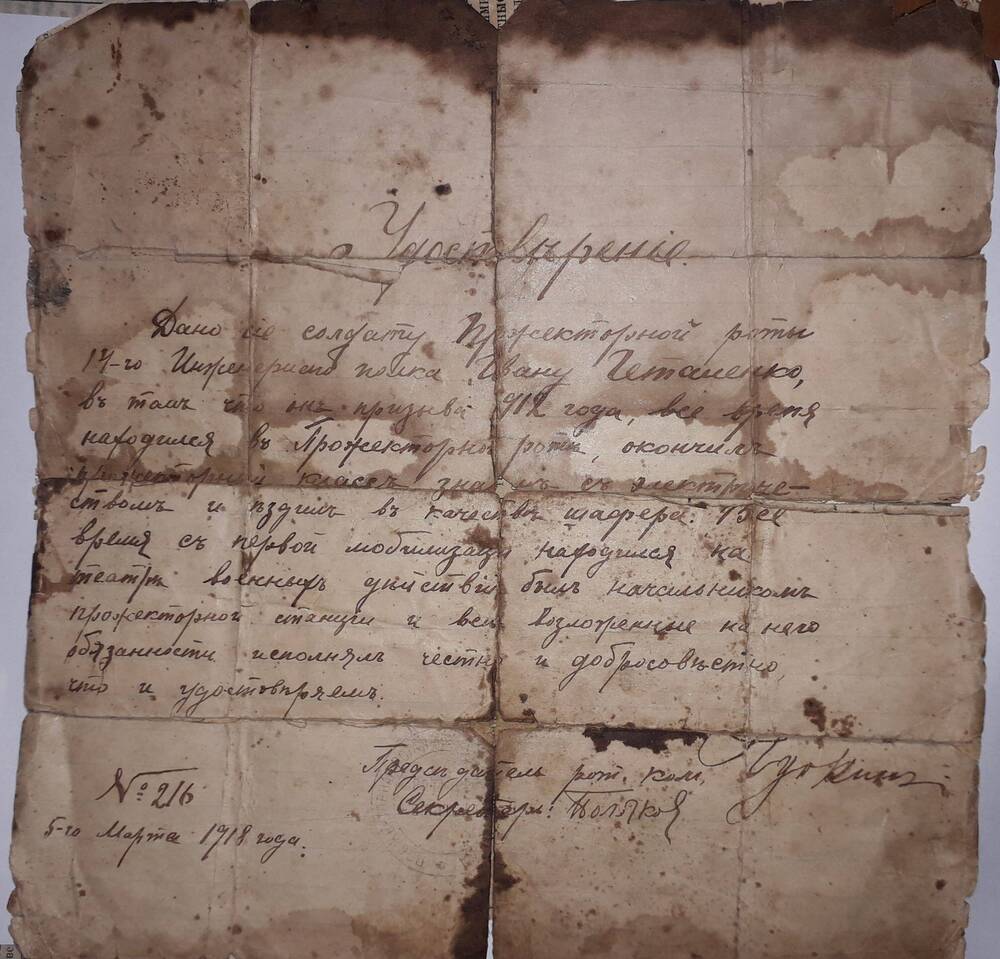 Удоствѣреніе.
Дано сіе солдату Прожекторной роты
14-го Инженернаго полка Ивану
въ томъ что онъ призыва 912 года, все время
находился въ Прожекторной ротѣ, окончилъ
прожекторный классъ знакомъ съ электриче-
ствомъ и ѣздилъ въ качествѣ шафера. Все
время съ первой мобилизаціи находился на
театрѣ военныхъ дѣйствій былъ начальникомъ
прожекторной станціи и всѣ возложенные на него
обязанности исполнялъ честно и добросовѣстно,
что и удостовѣряемъ.
Предсѣдатель рот. ком.
Секретарь: Поляков
№ 216
5-го Марта 1918 года.